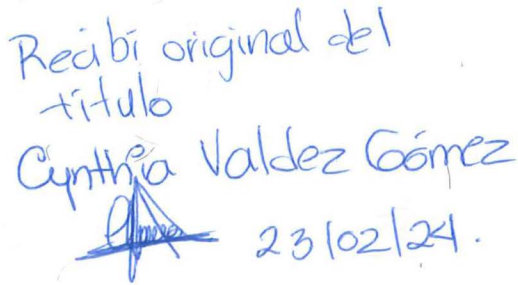 Recibí original del
título
Cynthia Valdez Gómez
23/02/24.